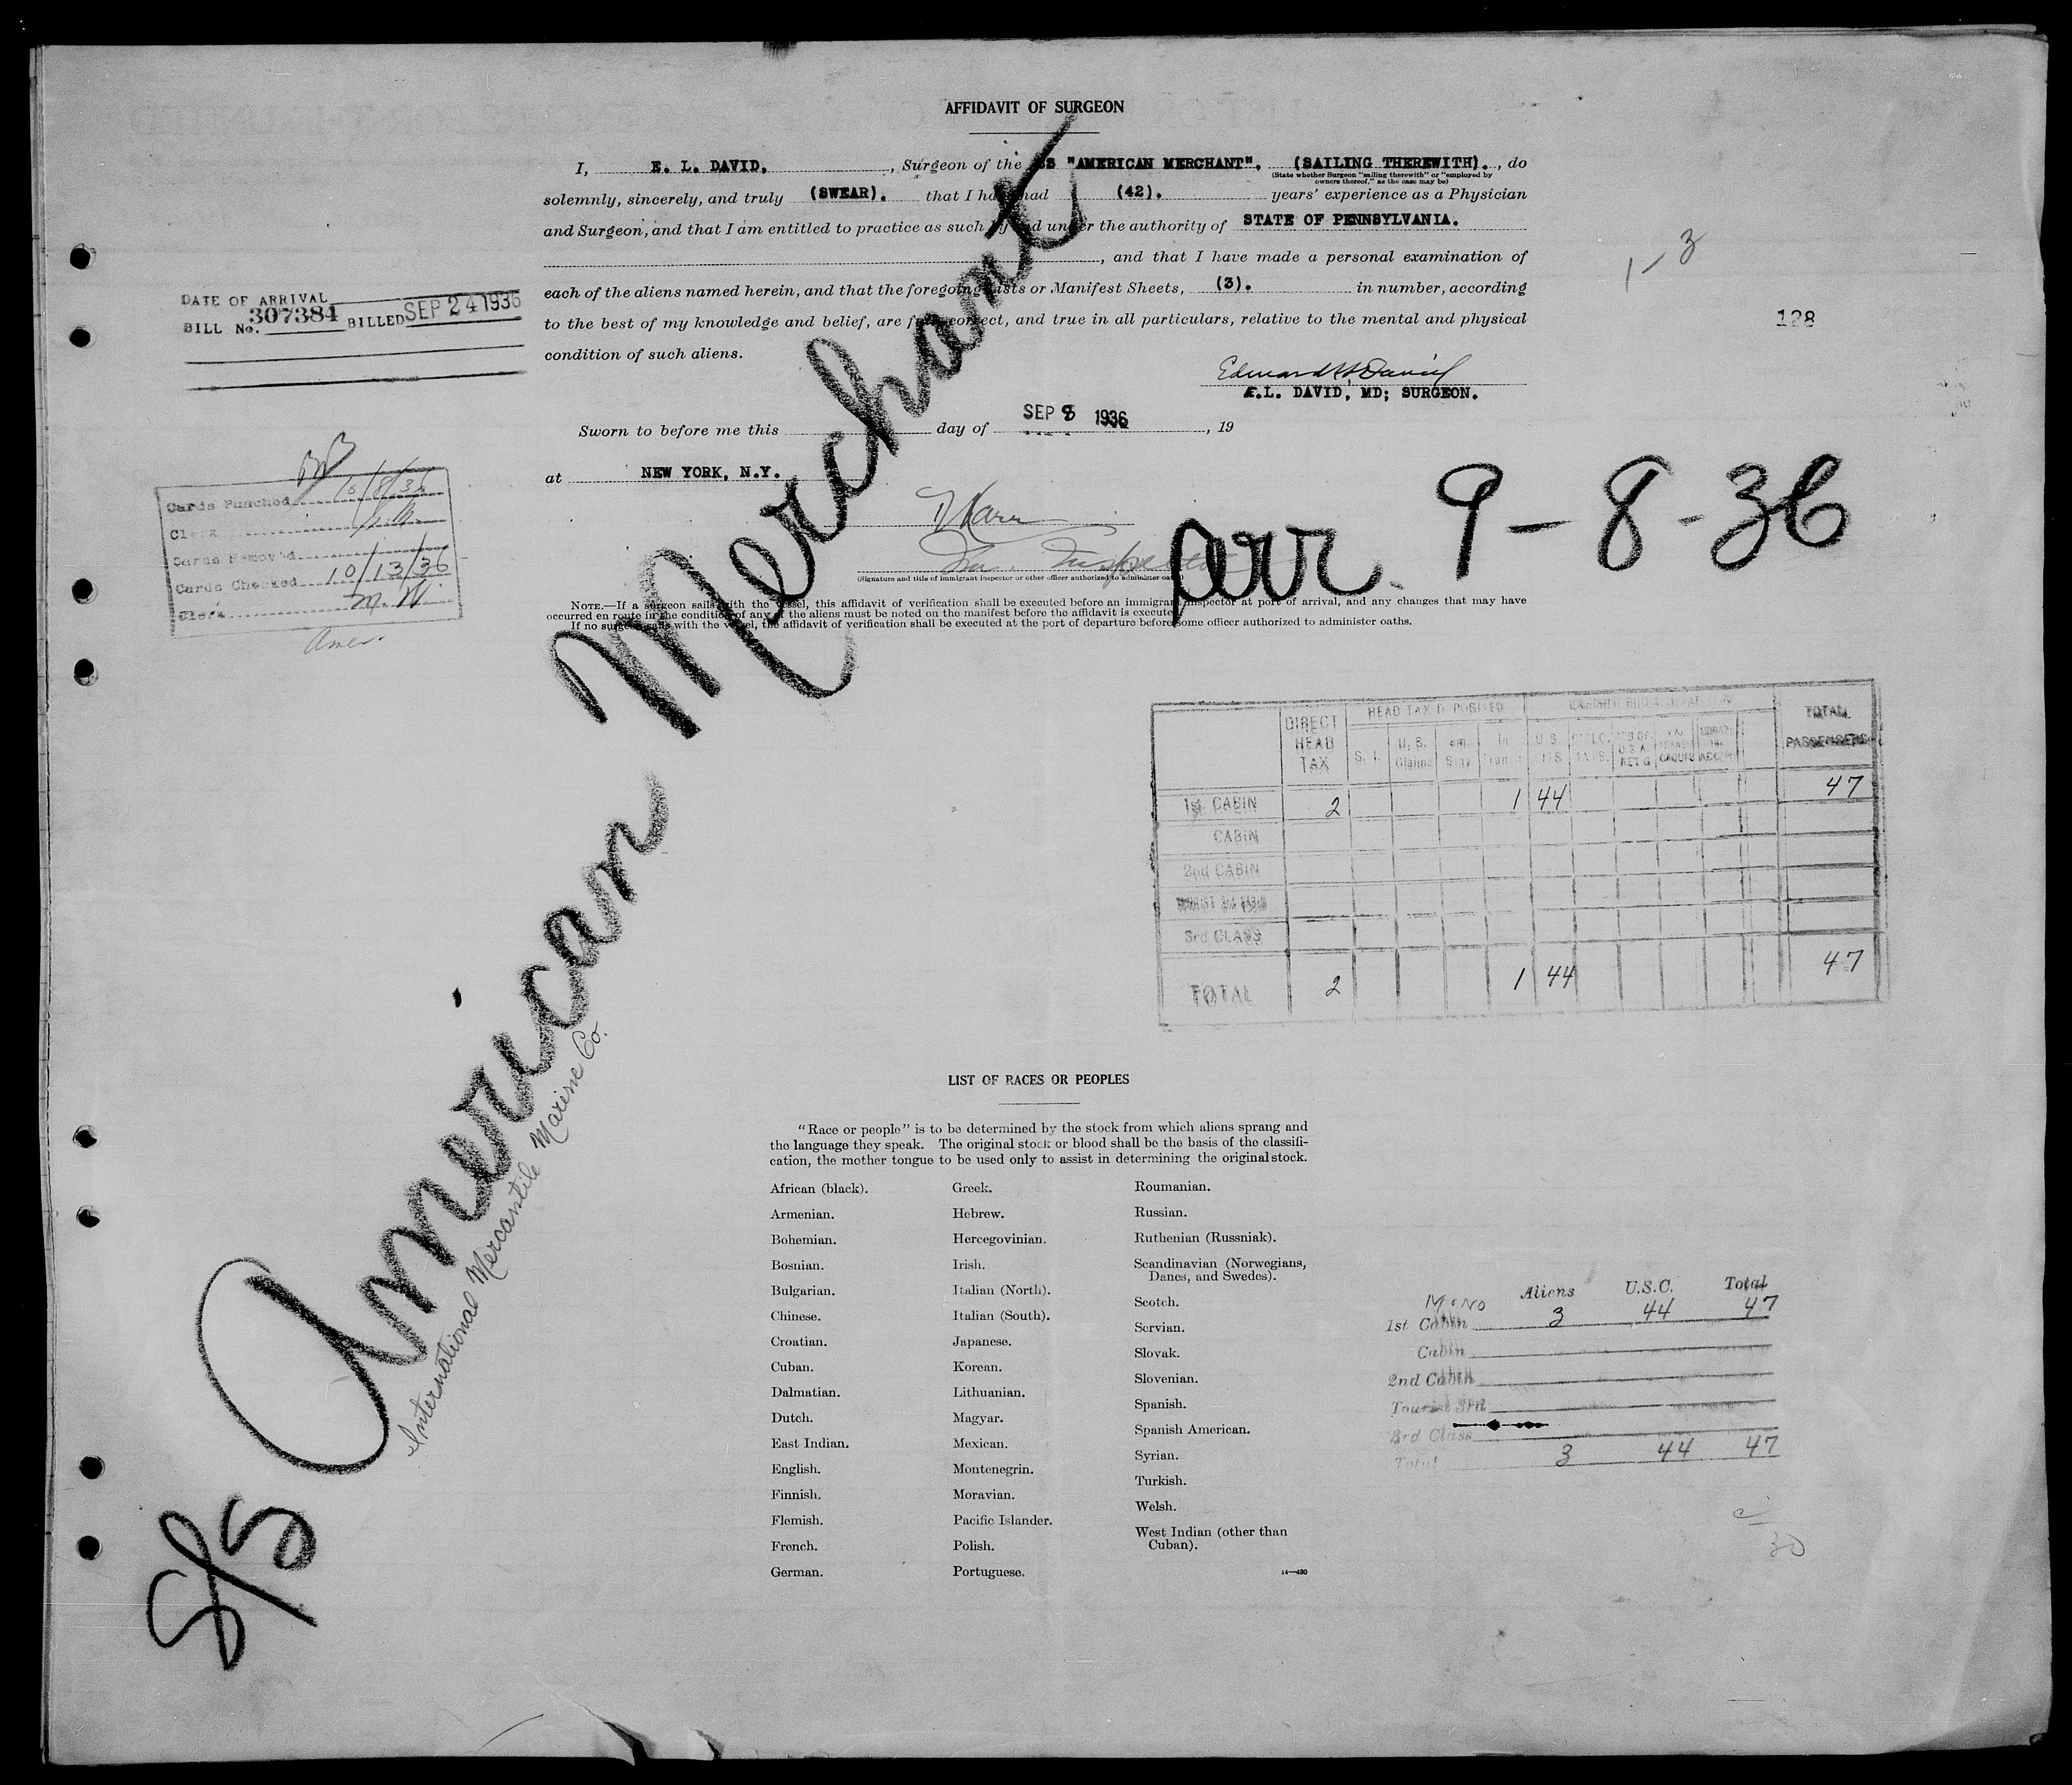 AFFIDAVIT OF SURGEON
I, E. L. DAVID, , Surgeon of the SS "AMERICAN MERCHANT", (SAILING THEREWITH). , do
(State whether Surgeon "sailing therewith" or "employed by
owners thereof," as the case may be)
solemnly, sincerely, and truly (SWEAR). that I have had (42). years' experience as a Physician
and Surgeon, and that I am entitled to practice as such by and under the authority of STATE OF PENNSYLVANIA.
, and that I have made a personal examination of
each of the aliens named herein, and that the foregoing Lists or Manifest Sheets, (3). in number, according
to the best of my knowledge and belief, are full, correct, and true in all particulars, relative to the mental and physical
condition of such aliens.
E.L. DAVID, MD; SURGEON.
Sworn to before me this day of SEP 8 1936 , 19
at NEW YORK, N.Y.
(Signature and title of immigrant inspector or other officer authorized to administer oaths)
NOTE.—If a surgeon sails with the vessel, this affidavit of verification shall be executed before an immigrant inspector at port of arrival, and any changes that may have
occurred en route in the condition of any of the aliens must be noted on the manifest before the affidavit is executed.
If no surgeon sails with the vessel, the affidavit of verification shall be executed at the port of departure before some officer authorized to administer oaths.
DATE OF ARRIVAL
BILL No. 307384 BILLED SEP 24 1936
1-3
128
Cards Punched 10/8/36
Clerk
Cards Removed
Cards Checked 10/13/36
Clerk M. W.
Amer.
S/S American Merchant
International Mercantile Marine Co.
arr. 9-8-36
DIRECT HEAD TAX
HEAD TAX DEPOSITED
TOTAL PASSENGERS
1st CABIN 2 1 44 47
CABIN
2nd CABIN
3rd CLASS
TOTAL 2 1 44 47
LIST OF RACES OR PEOPLES
"Race or people" is to be determined by the stock from which aliens sprang and
the language they speak. The original stock or blood shall be the basis of the classifi-
cation, the mother tongue to be used only to assist in determining the original stock.
African (black).
Armenian.
Bohemian.
Bosnian.
Bulgarian.
Chinese.
Croatian.
Cuban.
Dalmatian.
Dutch.
East Indian.
English.
Finnish.
Flemish.
French.
German.
Greek.
Hebrew.
Hercegovinian.
Irish.
Italian (North).
Italian (South).
Japanese.
Korean.
Lithuanian.
Magyar.
Mexican.
Montenegrin.
Moravian.
Pacific Islander.
Polish.
Portuguese.
Roumanian.
Russian.
Ruthenian (Russniak).
Scandinavian (Norwegians,
Danes, and Swedes).
Scotch.
Servian.
Slovak.
Slovenian.
Spanish.
Spanish American.
Syrian.
Turkish.
Welsh.
West Indian (other than
Cuban).
Aliens U.S.C. Total
1st Cabin 3 44 47
Cabin
2nd Cabin
Tourist 3rd
3rd Class
Total 3 44 47
30